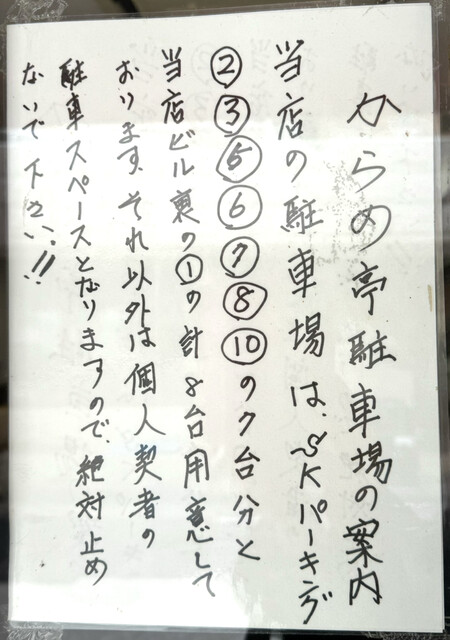 からめ亭駐車場の案内
当店の駐車場は、SKパーキング
②③⑤⑥⑦⑧⑩の7台分と
当店ビル裏の①の計8台用意して
おります。それ以外は個人契者の
駐車スペースとなりますので、絶対止め
ないで下さい!!